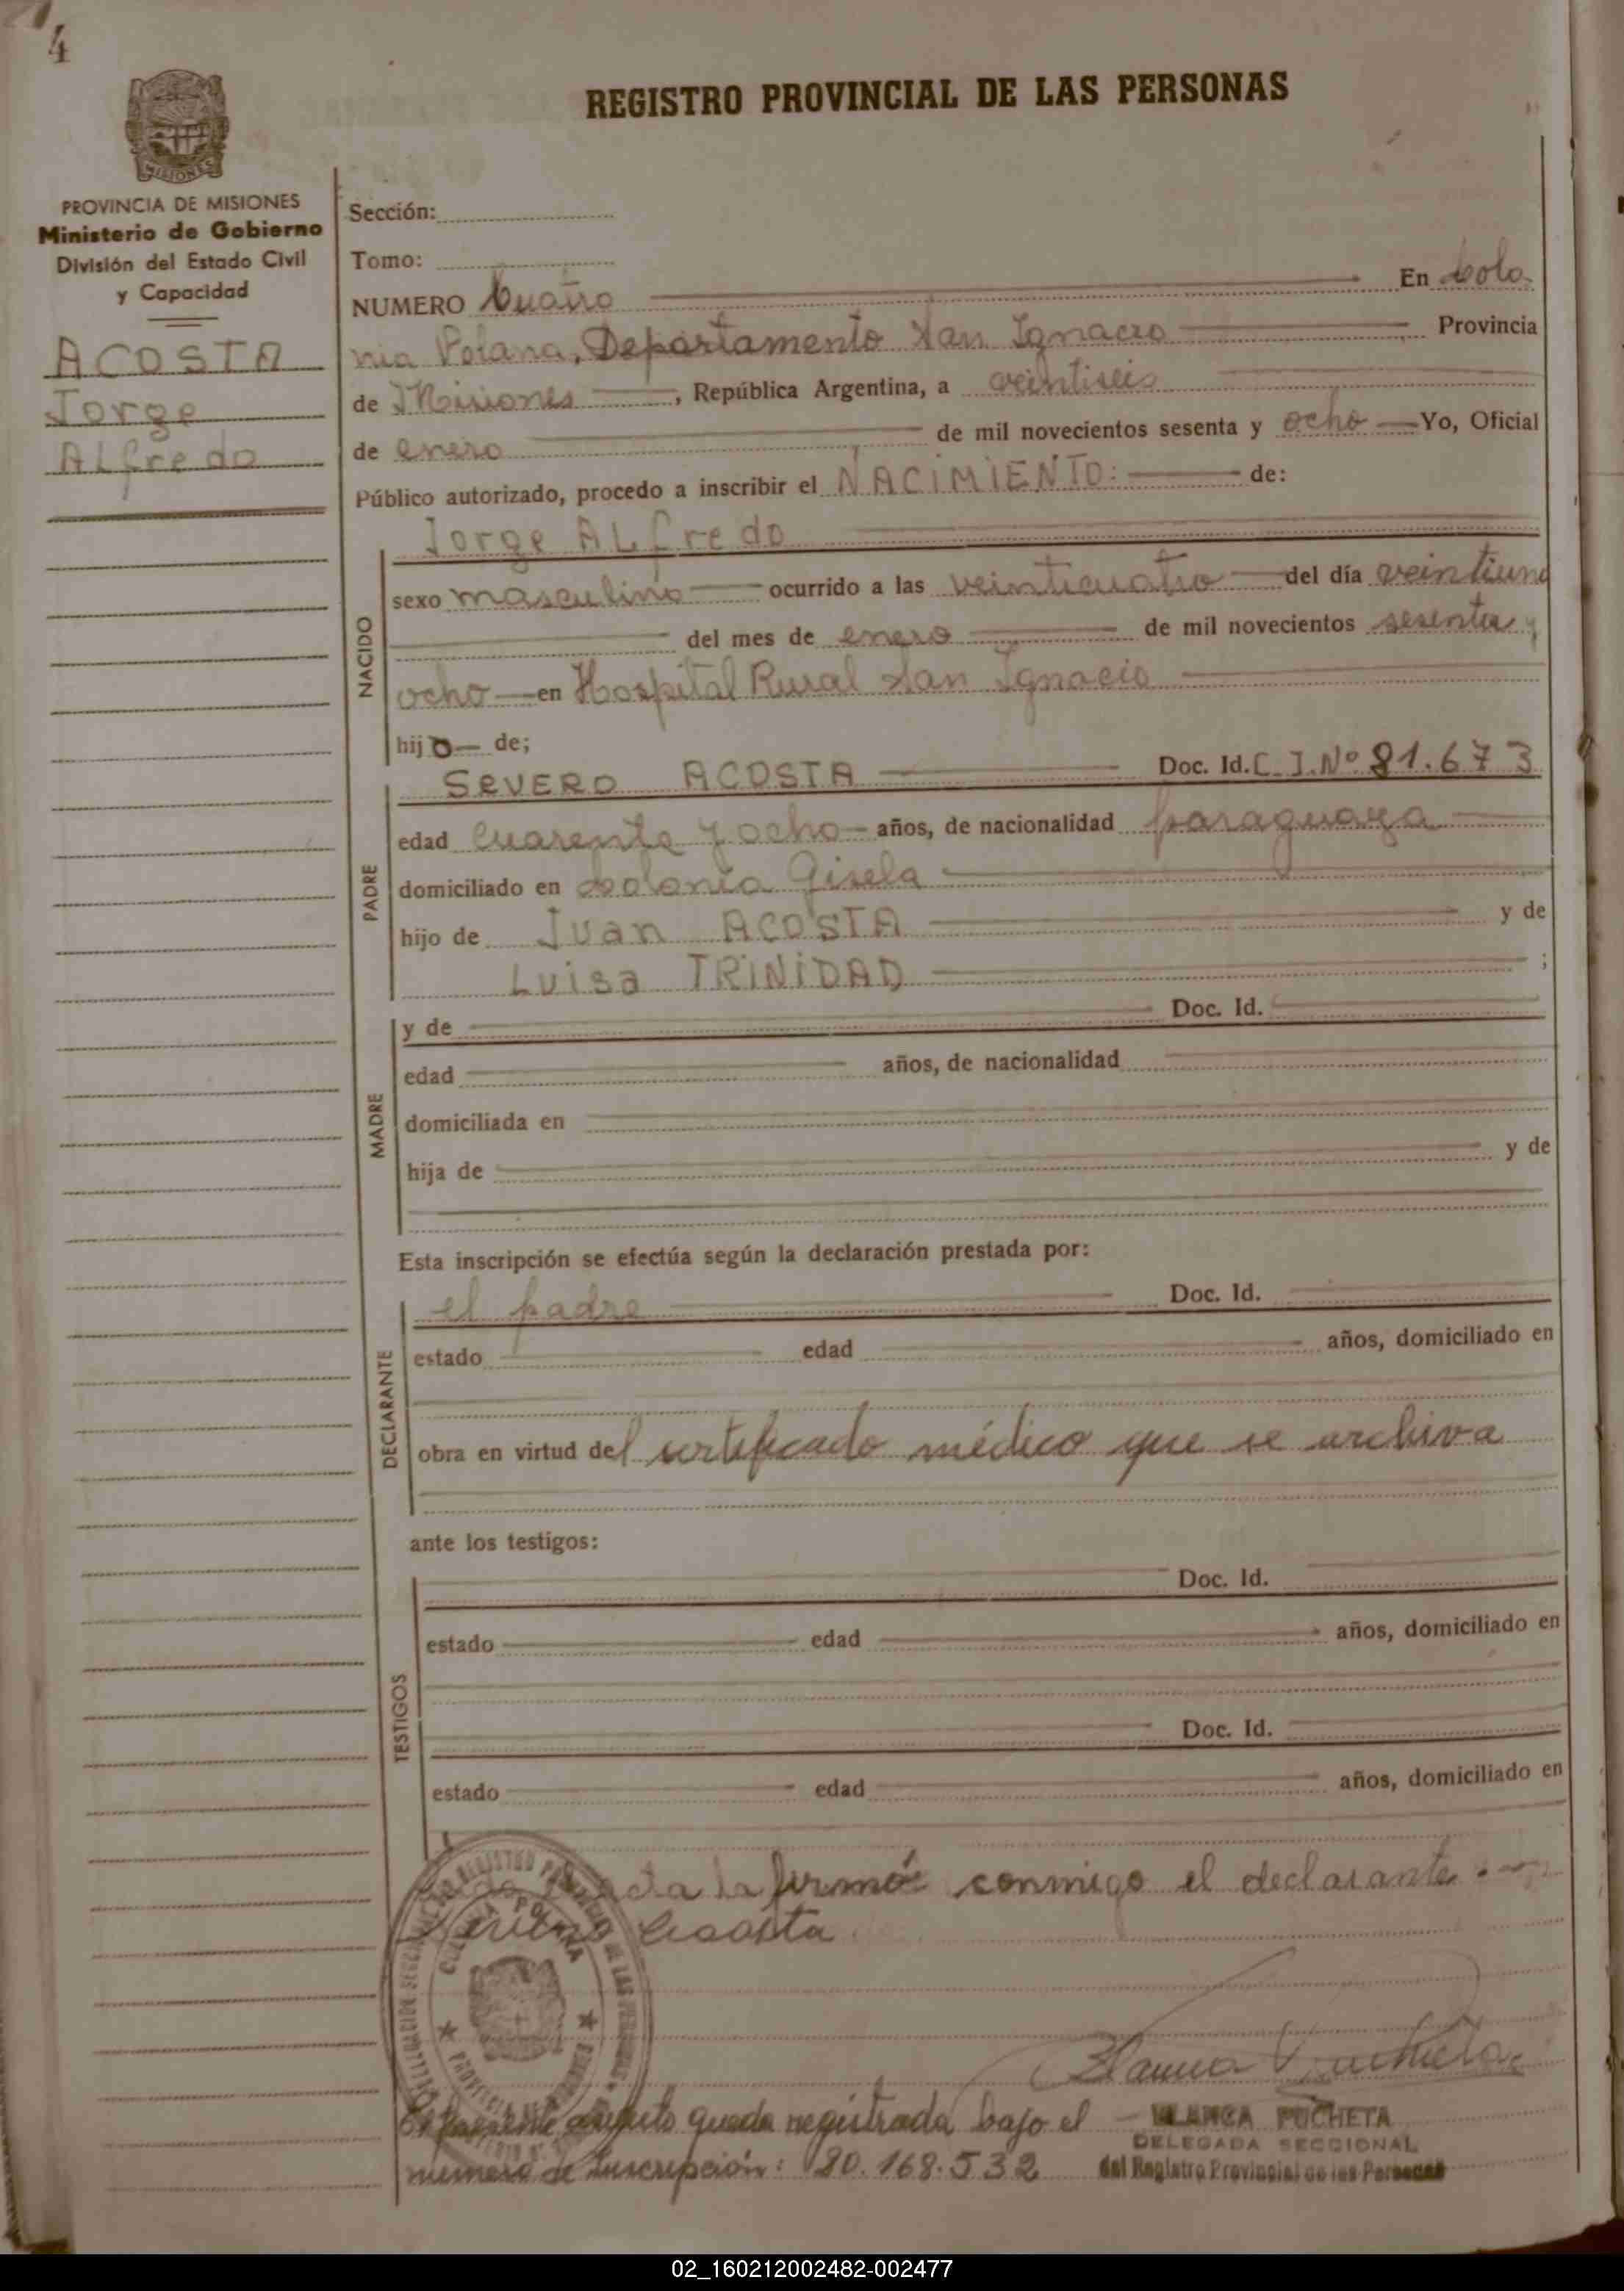 4
MISIONES
PROVINCIA DE MISIONES
Ministerio de Gobierno
División del Estado Civil
y Capacidad
ACOSTA
Jorge
ALfredo
REGISTRO PROVINCIAL DE LAS PERSONAS
Sección:
Tomo:
NUMERO Cuatro En Colo-
nia Polana, Departamento San Ignacio Provincia
de Misiones, República Argentina, a veintiseis
de enero de mil novecientos sesenta y ocho Yo, Oficial
Público autorizado, procedo a inscribir el NACIMIENTO: de:
NACIDO
Jorge ALfredo
sexo masculino ocurrido a las veinticuatro del día veintiuno
del mes de enero de mil novecientos sesenta y
ocho en Hospital Rural San Ignacio
hijo de;
PADRE
SEVERO ACOSTA Doc. Id. C.I.Nº 81.673
edad cuarenta y ocho años, de nacionalidad paraguaya
domiciliado en Colonia Gisela
hijo de Juan ACOSTA y de
Luisa TRINIDAD ;
MADRE
y de Doc. Id.
edad años, de nacionalidad
domiciliada en
hija de y de
Esta inscripción se efectúa según la declaración prestada por:
DECLARANTE
el padre Doc. Id.
estado edad años, domiciliado en
obra en virtud del certificado médico que se archiva
ante los testigos:
TESTIGOS
Doc. Id.
estado edad años, domiciliado en
Doc. Id.
estado edad años, domiciliado en
acta la firmó conmigo el declarante.
Severo Acosta
COLONIA POLANA
REGISTRO PROVINCIAL DE LAS PERSONAS
PROVINCIA DE MISIONES
queda registrada bajo el
BLANCA PUCHETA
DELEGADA SECCIONAL
numero de inscripción: 20.168.532 del Registro Provincial de las Personas
02_160212002482-002477